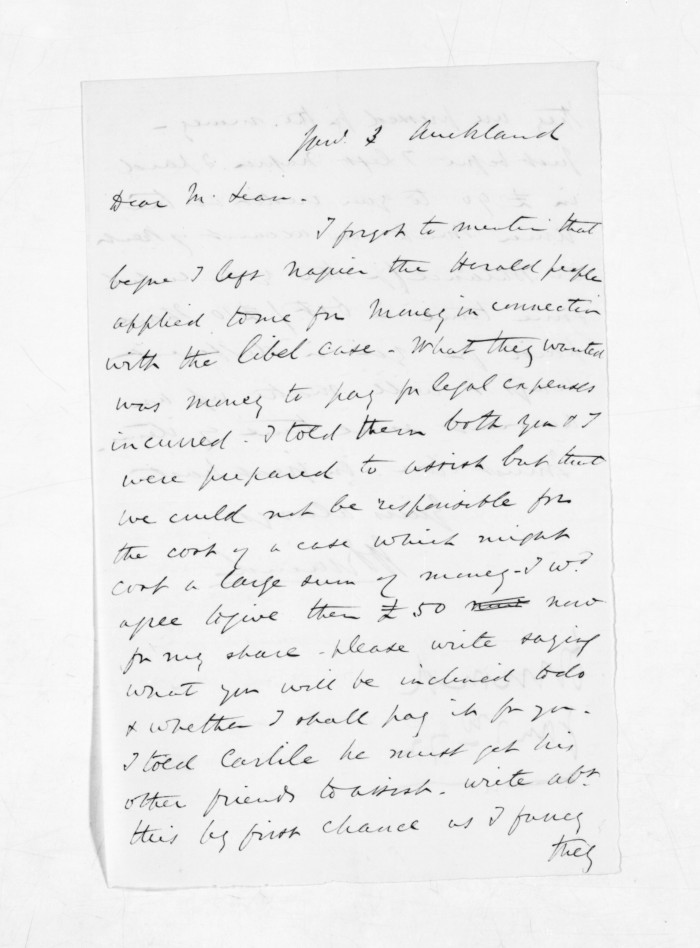 3 Auckland
Dear McLean.
I forgot to mention that
before I left Napier the Herald people
applied to me for money in connection
with the libel case - What they wanted
was money to pay for legal expenses
incurred - I told them both you & I
were prepared to assist but that
we could not be responsible for
the cost of a case which might
cost a large sum of money - I wd
agree to give them £50 now
for my share - please write saying
what you will be inclined to do
& whether I shall pay it for you -
I told Carlile he must get his
other friends to assist - write abt
this by first chance as I fancy
they